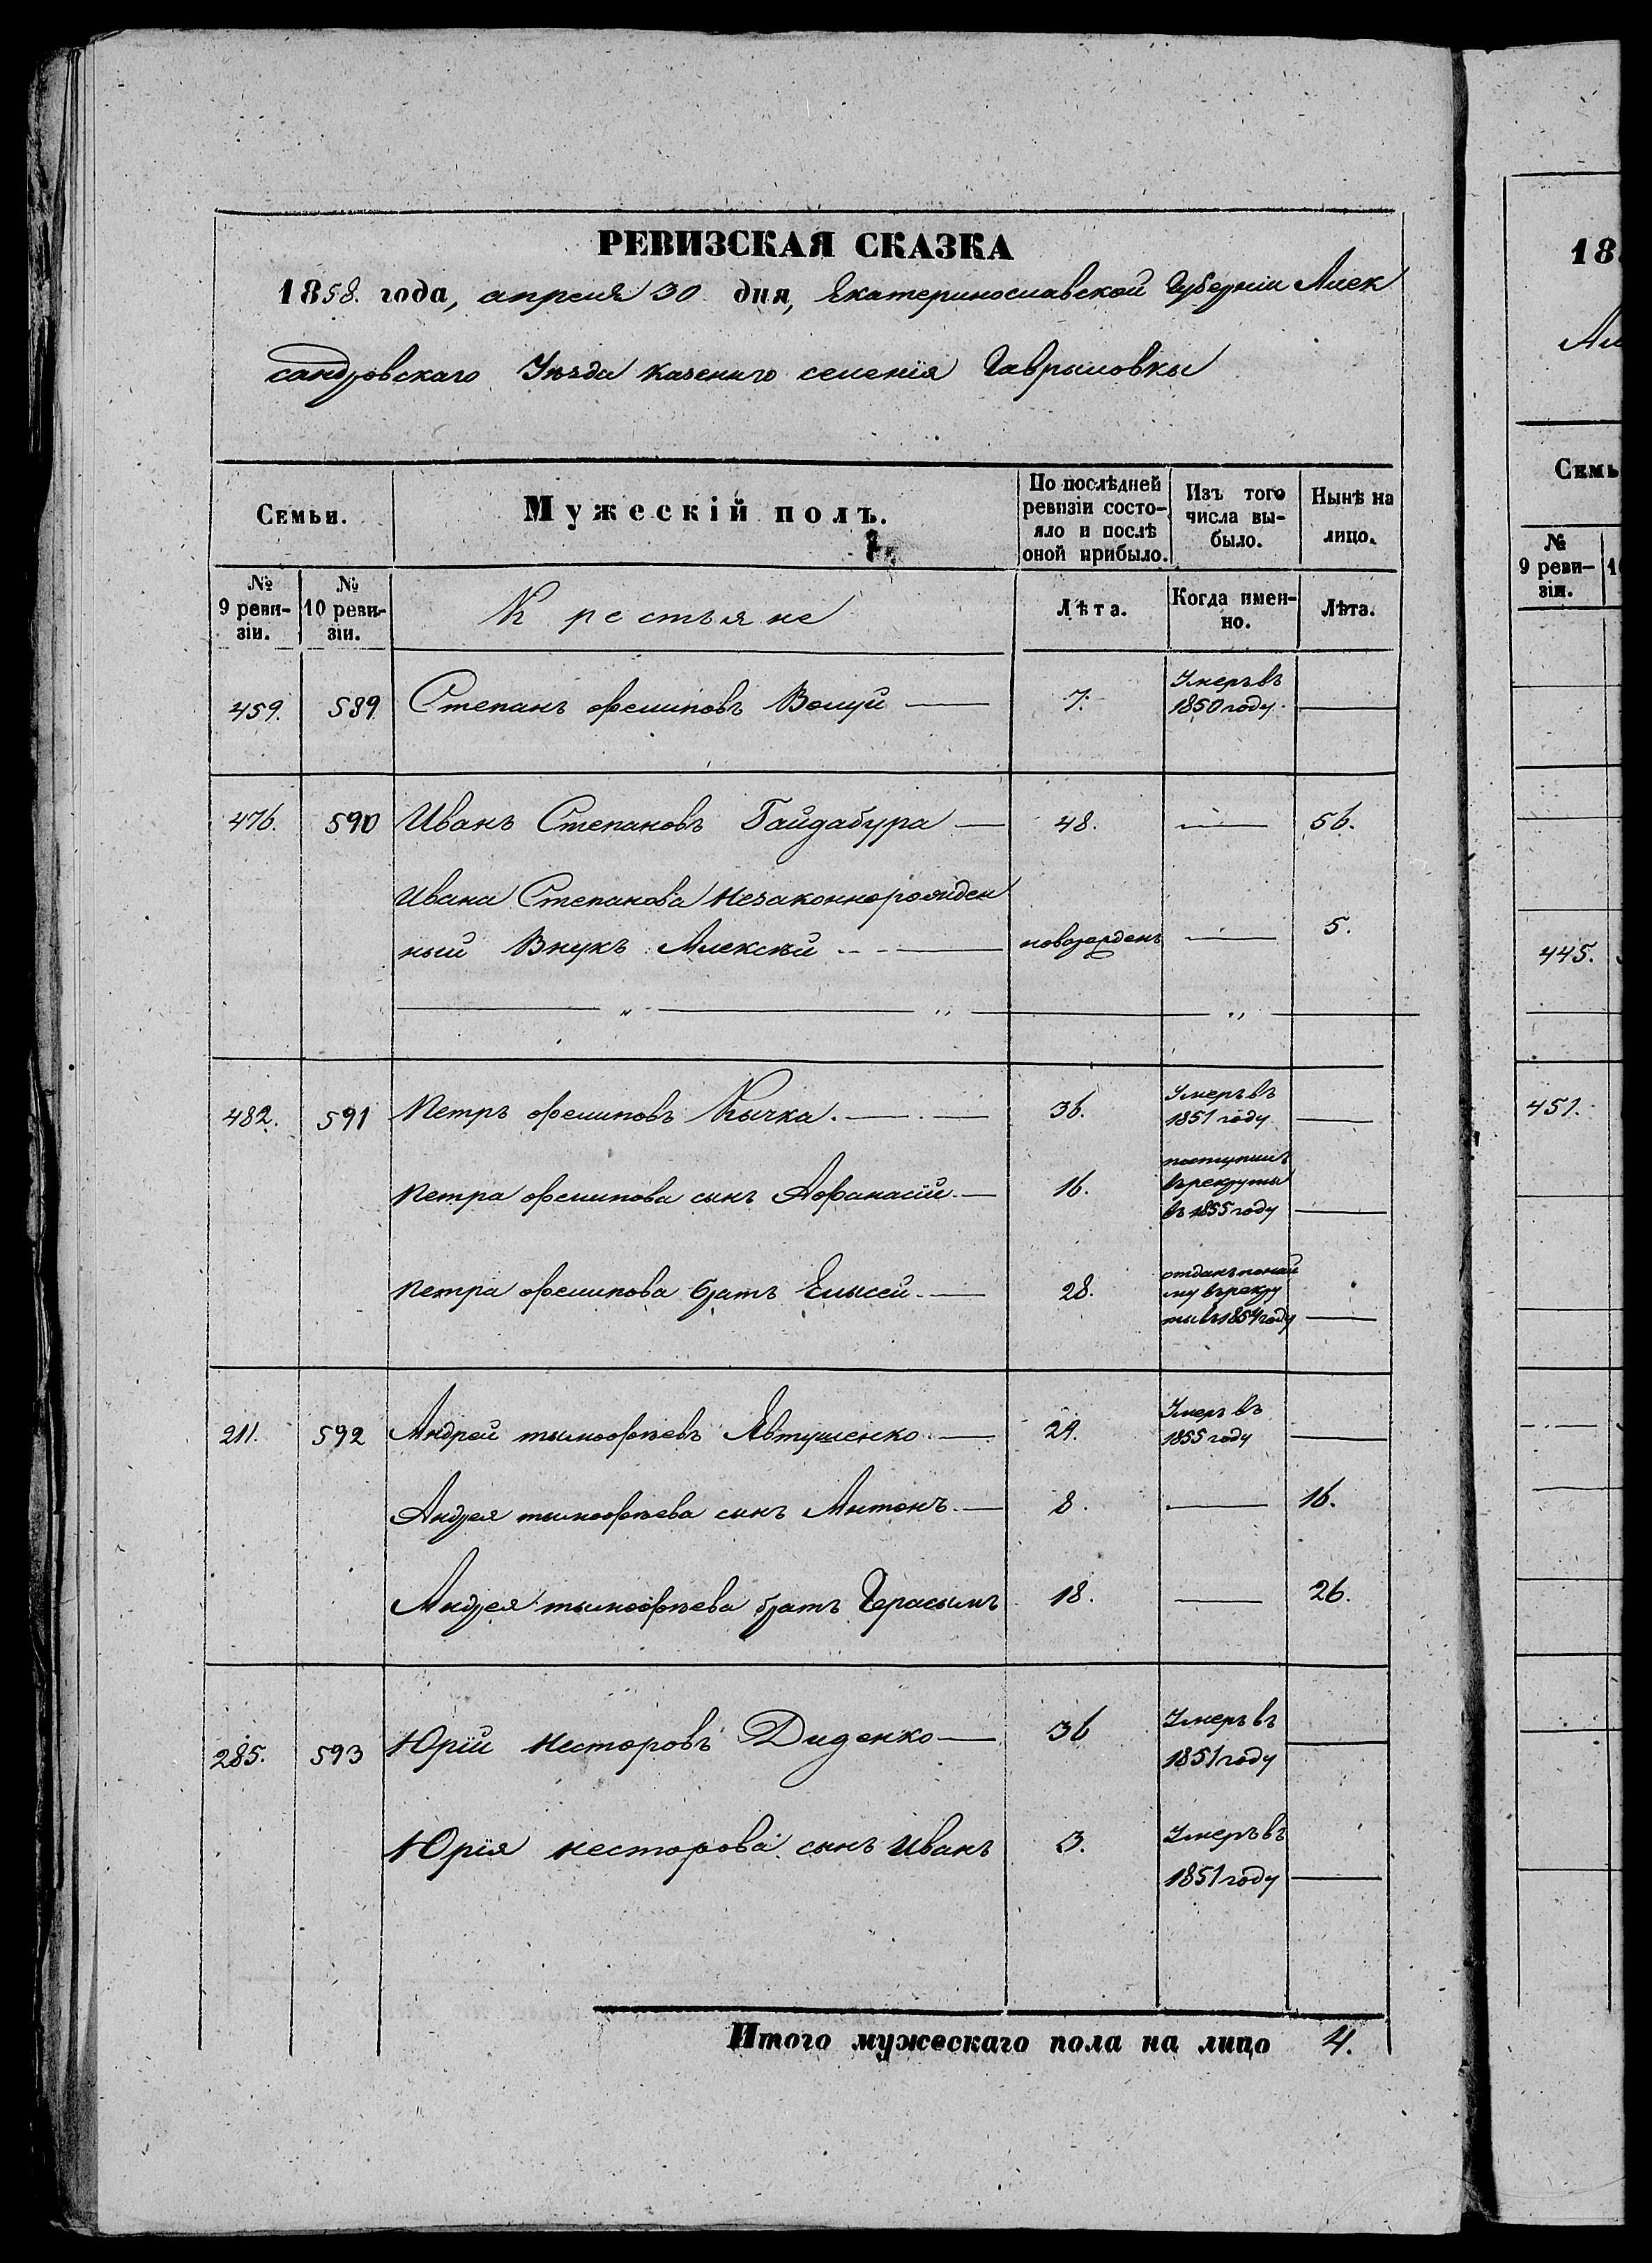 РЕВИЗСКАЯ СКАЗКА
1858. года, апреля 30 дня, Екатеринославской Губерніи Алек
сандровскаго Уѣзда казеннго селенія Гаврыловкы
Семьи.
Мужескій полъ.
По послѣдней
ревизіи состо-
яло и послѣ
оной прибыло.
Изъ того
числа вы-
было.
Нынѣ на
лицо.
№
9 реви-
зіи.
№
10 реви-
зіи.
Крестьяне
Лѣта.
Когда имен-
но.
Лѣта.
459. 589 Степанъ Филиповъ 7. Умеръ въ
1850 году.
476. 590 Иванъ Степановъ Гайдабура 48. 56.
Ивана Степанова Незаконнорожден
ный Внукъ Алексѣй новорожденъ 5.
482. 591 Петръ Филиповъ Кычка. 36. Умеръ въ
1851 году
Петра Филипова сынъ Афанасій 16. поступилъ
въ рекруты
въ 1855 году
Петра Филипова братъ Елысей 28. отданъ по най
му въ рекру
ты въ 1854 году
211. 592 Андрей тымофѣевъ Явтушенко 24. Умеръ въ
1855 году
Андрея тымофѣева сынъ Антонъ 8. 16.
Андрея тымофѣева братъ Герасымъ 18. 26.
285. 593 Юрій Несторовъ Диденко 36 Умеръ въ
1851 году
Юрія несторова сынъ Иванъ 3. Умеръ въ
1851 году
Итого мужескаго пола на лицо 4.
18
Семь
№
9 реви-
зіи.
445.
451.